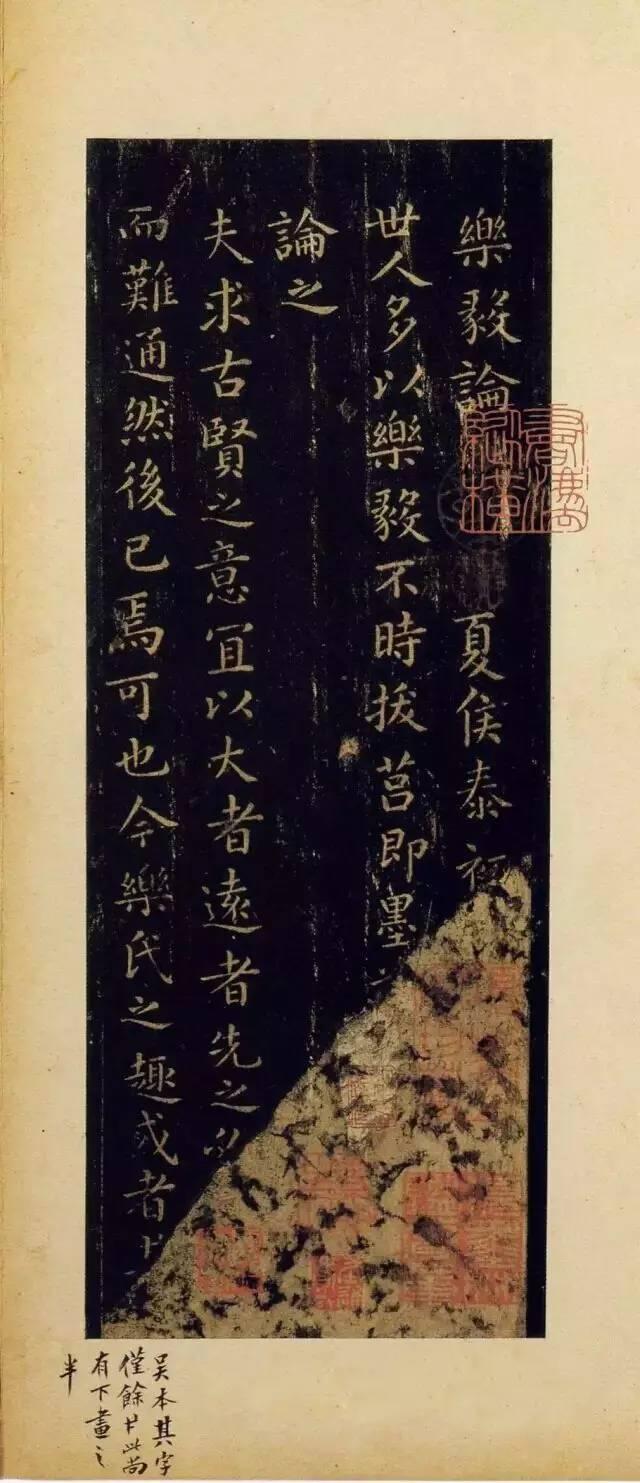 樂毅論 夏侯泰初
世人多以樂毅不時拔莒即墨
論之
夫求古賢之意宜以大者遠者先之
而難通然後已焉可也今樂氏之趣或者
吴本其字
僅餘甘此尚
有下畫之
半